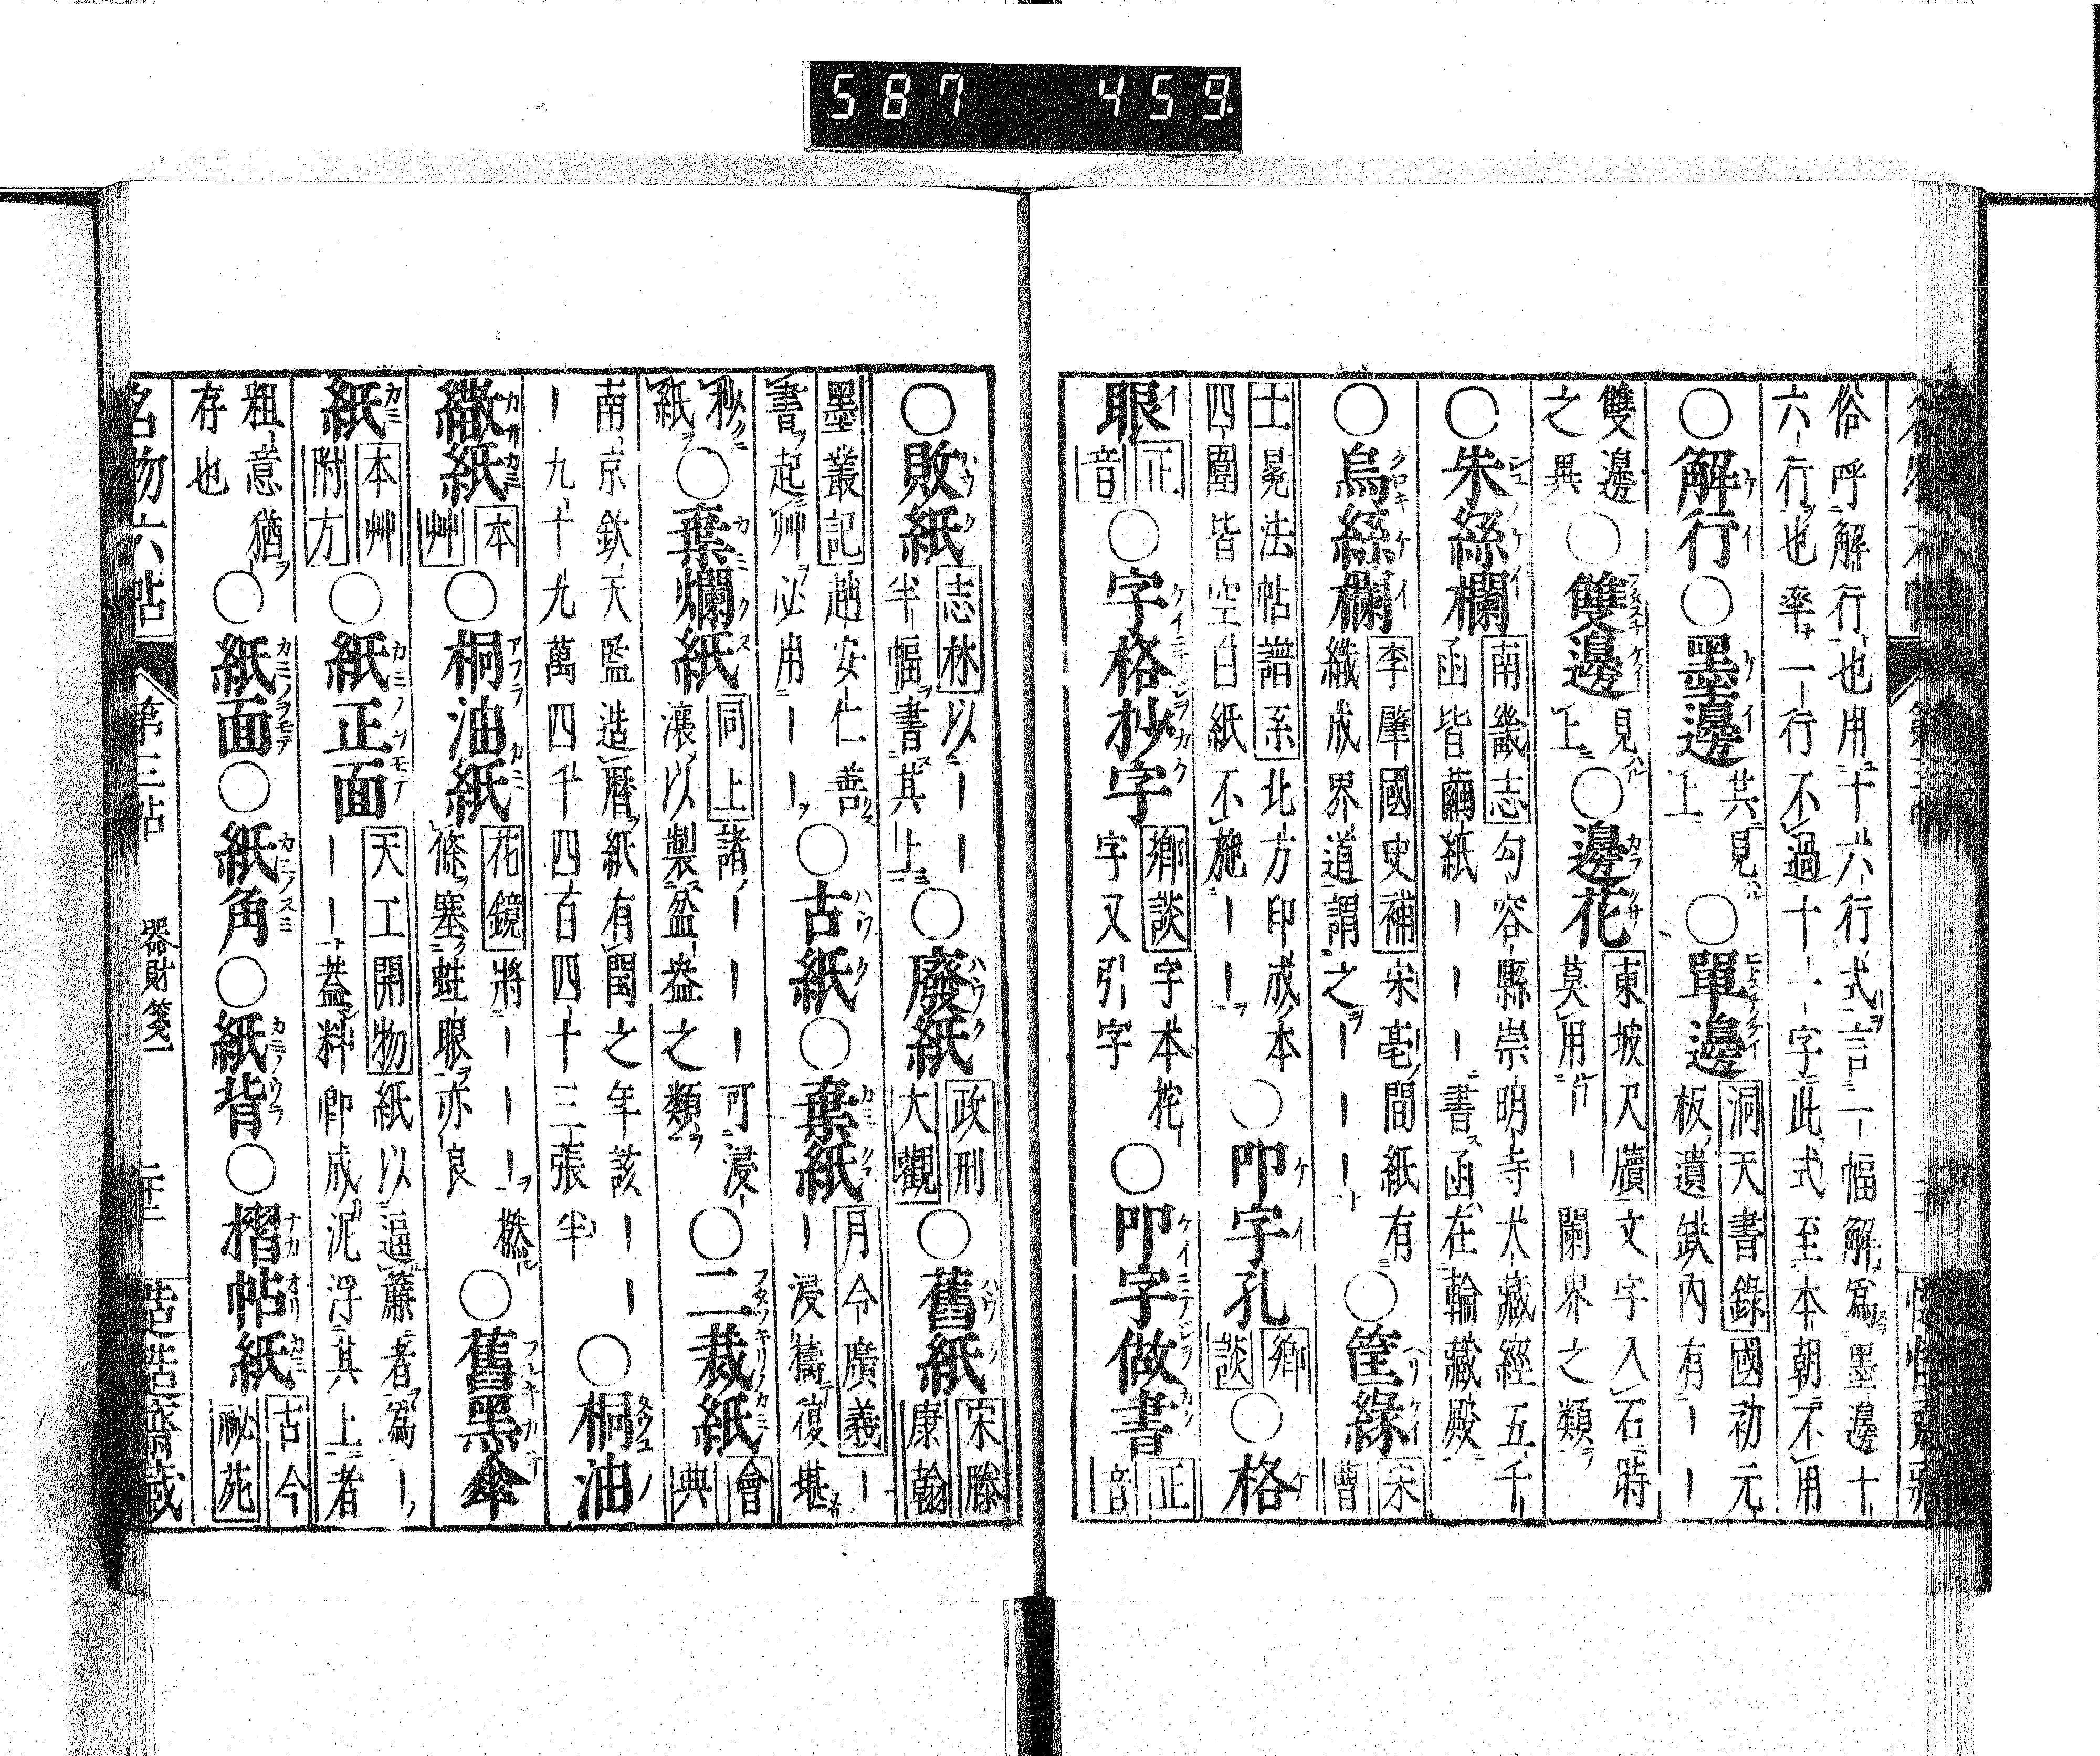 俗呼解行也用十六行式言一幅解爲墨邊十六行也率一行不過十一字此式至本朝不用
○解行○墨邊共見上○單邊洞天書錄國初元板遺鈌內有｜｜
雙邊之異○雙邊見上○邊花東坡尺牘文字入石時莫用｜｜闌界之類
○朱絲欄南畿志勾容縣崇明寺大藏經五千函皆繭紙｜｜｜書函在輪藏殿
○烏絲欄李肇國史補宋亳間紙有織成界道謂之｜｜｜○筐緣宋曹
士冕法帖譜系北方印成本四圍皆空白紙不施｜｜○印字孔鄉談○格
眼正音○字格抄字鄉談字本字又引字○印字做書正音
○敗紙志林以｜｜半幅書其上○廢紙政刑大觀○舊紙宋滕康翰
墨叢記趙安仁善書起艸必用｜｜○古紙○棄紙月令廣義｜｜浸擣復堪
秒紙○棄爛紙同上諸｜｜｜可浸瀼以製盆盎之類○二裁紙會典
南京欽天監造曆紙有閏之年該｜｜｜九十九萬四千四百四十三張半○桐油
繖紙本艸○桐油紙花鏡將｜｜｜撚條塞蛀眼亦良○舊黑傘
紙本艸附方○紙正面天工開物紙以逼簾者爲｜｜｜蓋料卽成泥浮其上者
粗意猶存也○紙面○紙角○紙背○摺帖紙古今祕苑
名物六帖 第三帖 器財箋一
587 459